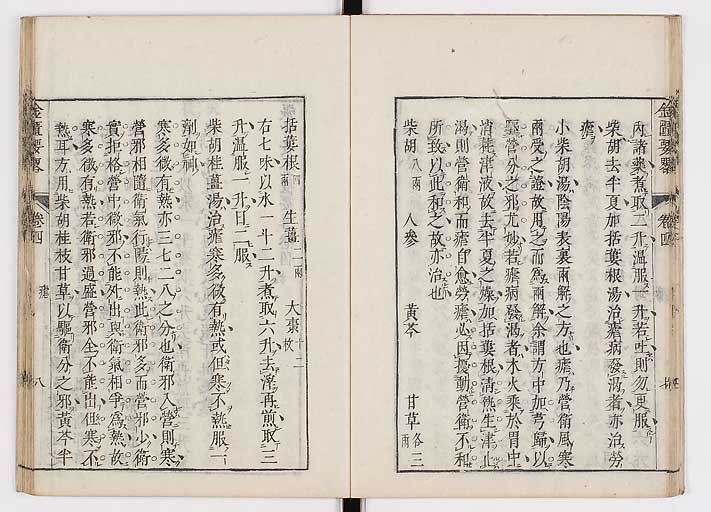 金匱要畧 卷四
內諸藥煮取二升溫服一升若吐則勿更服
柴胡去半夏加括蔞根湯治瘧病發渴者亦治勞
瘧
小柴胡湯陰陽表裏兩解之方也瘧乃營衛風寒
兩受之證故用之而為兩解余謂方中加芎歸以
驅營分之邪尤妙若瘧病發渴者木火乘於胃中
消耗津液故去半夏之燥加括蔞根清熱生津止
渴則營衛和而瘧自愈勞瘧必因擾動營衛不和
所致以此和之故亦治也
柴胡八兩 人參 黃芩 甘草各三兩
括蔞根四兩 生薑二兩 大棗十二枚
右七味以水一斗二升煮取六升去滓再煎取三
升溫服一升日二服
柴胡桂薑湯治瘧寒多微有熱或但寒不熱服一
劑如神
寒多微有熱亦三七二八之分也衛邪入營則寒
營邪相隨衛氣行陽則熱此衛邪多而營邪少衛
實拒格營中微邪不能外出與衛氣相爭為熱故
寒多微有熱若衛邪過盛營邪全不能出但寒不
熱耳方用柴胡桂枝甘草以驅衛分之邪黃芩半
金匱要畧 卷四 八